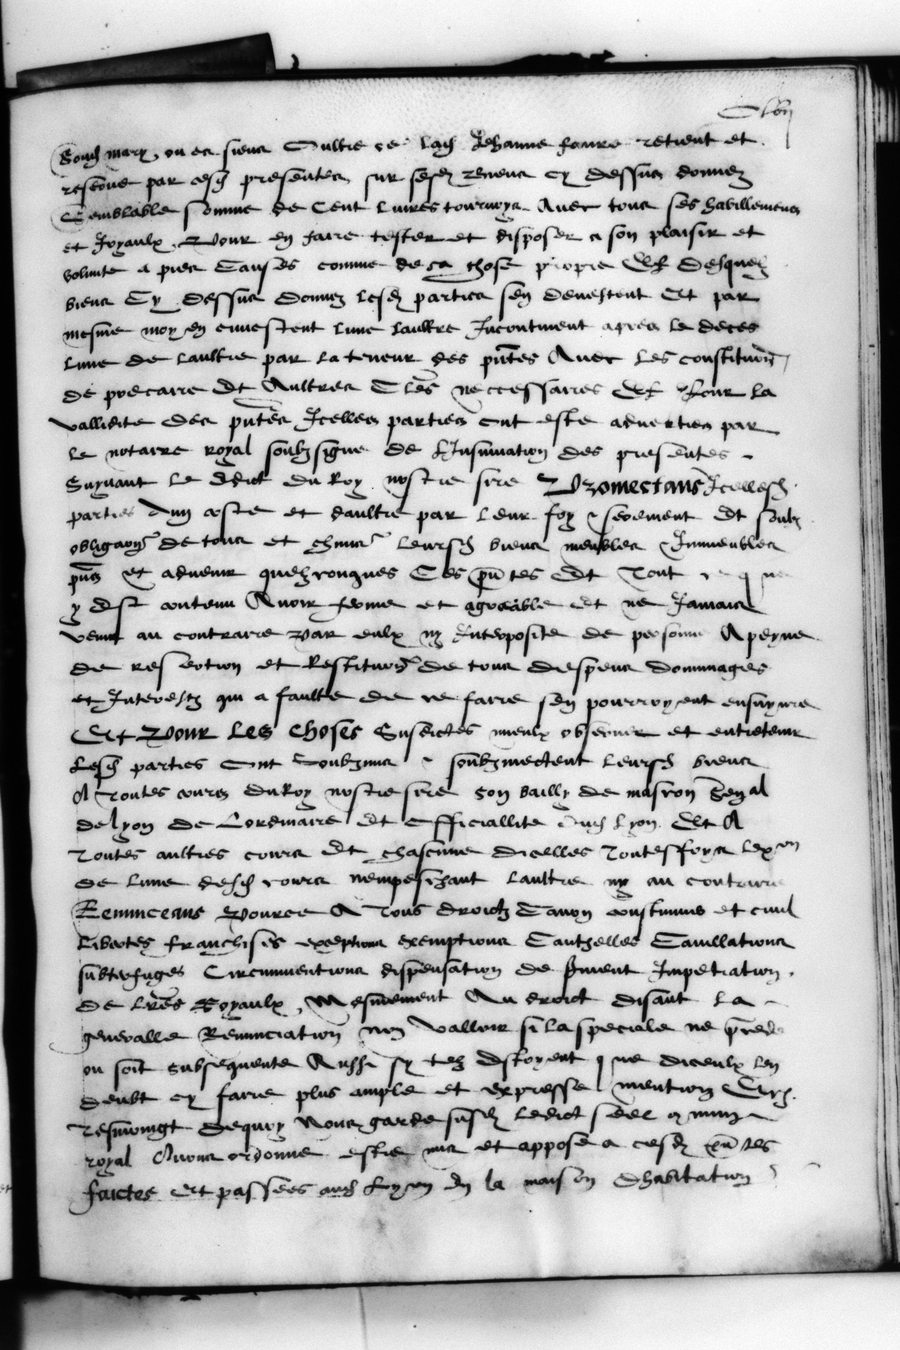 Soud mary, ou es siens Oultre ce lad Jehanne faure retient et
reserve par cesd presentes sur sesd biens cy dessus donnez
Semblable somme de Cent livres tournoys Avec tous ses habillemens
et Joyaulx, Pour en faire tester et disposer a son plaisir et
volunte a pies Causes comme de sa chose propre Et desquelz
biens Cy dessus donnez lesd parties sen devestent Et par
mesme moyen envestent lune laultre Incontinent apres le deces
lune de laultre par la teneur des pntes Avec les constitution
de precaire Et Aultres Cles neccessaires Et Pour la
vallidite des pntes Icelles parties ont este adverties par
le notaire royal soubsigne de lInsinuation des presentes
Suyvant le Edict du Roy nostre sire Promectans Icellesd
parties dun coste et daultre par leur foy serement Et soubz
obligaon de tous et chuns leursd biens meubles Immeubles
pns et advenir quelzconques Ces pntes Et Tout ce que
y est contenu Avoir ferme et agreable Et ne Jamais
venir au contraire Par eulx ny Interposite de personne A peyne
de resertion et Restitution de tous despens dommages
et Interestz qui a faulte de ce faire sen pourroyent ensuyvre
Et Pour les choses Susdictes mieulx observer et entretenir
Lesd parties Ont Soubzmis soubzmectent leursd biens
A Toutes cours du Roy nostre sire son bailly de mascon Senal
de Lyon de Lordinaire Et Officiallite dud Lyon Et A
Toutes aultres cours Et chascune dicelles Toutesfoys lexon
de lune desd cours nempeschant laultre ny au contraire
Renunceans Pource A Tous droictz Canon constumes et civil
libertes franchises exceptions exemptions Cauthelles Cavillations
subterfuges Circunventions dispensation de serment Impetration
de lres Royaulx, Mesmement Au droict disant la
generalle Renunciation non valloir si la speciale ne precede
ou soit subsequente Aussi sy telz estoyent que diceulx len
deubt cy faire plus ample et expresse mention En
tesmoingt dequoy Nous garde susd ledict seel commun
royal Avons ordonne estre mis et appose a cesd pntes
faictes Et passees aud Lyon En la maison dhabitation